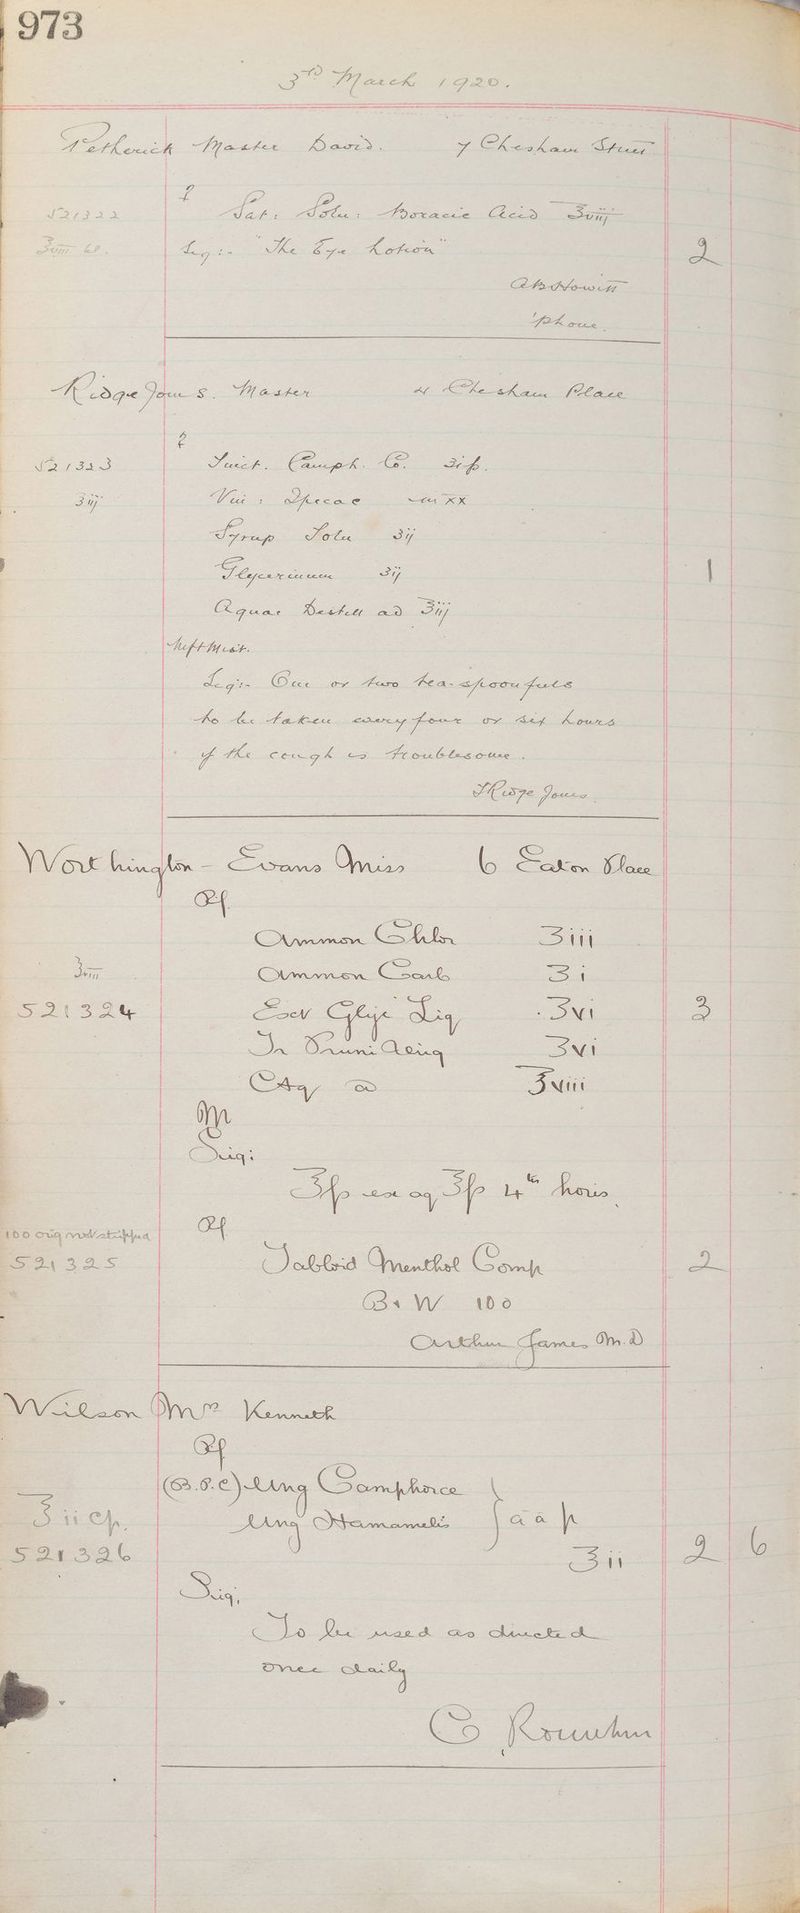 973
3rd March 1920.
Petherick Master David. 7 Chesham Street
℞
521322 Sat: Solu: Boracic Acid ℥viij
℥viii bl. Sig:- "The Eye Lotion" 2
AB Howitt
'phone.
Ridge Jones. Master 4 Chesham Place
℞
521323 Tinct. Camph. Co. ʒiſs.
℥iij Vin: Ipecac ♏xx
Syrup Tolu ʒij
Glycerinum ʒij 1
Aquae Destill ad ℥iij
Mft Mist.
Sig:- One or two tea-spoonfuls
to be taken every four or six hours
if the cough is troublesome.
T Ridge Jones.
Worthington-Evans Miss 6 Eaton Place
Rf
Ammon Chlor ʒiii
℥viii Ammon Carb ʒi
521324 Ext Glyc Liq ʒvi 3
Tr Pruni Virg ʒvi
Aq ad ℥viii
M
Sig:
℥ſs ex aq ℥ſs 4tis horis.
100 orig not stripped Rf
521325 Tabloid Menthol Comp 2
B & W 100
Arthur James M.D
Wilson Mrs Kenneth
Rf
(B.P.C) Ung Camphorae
℥ii cp. Ung Hamamelis } āā p
521326 ℥ii 2 6
Sig;
To be used as directed
once daily
C